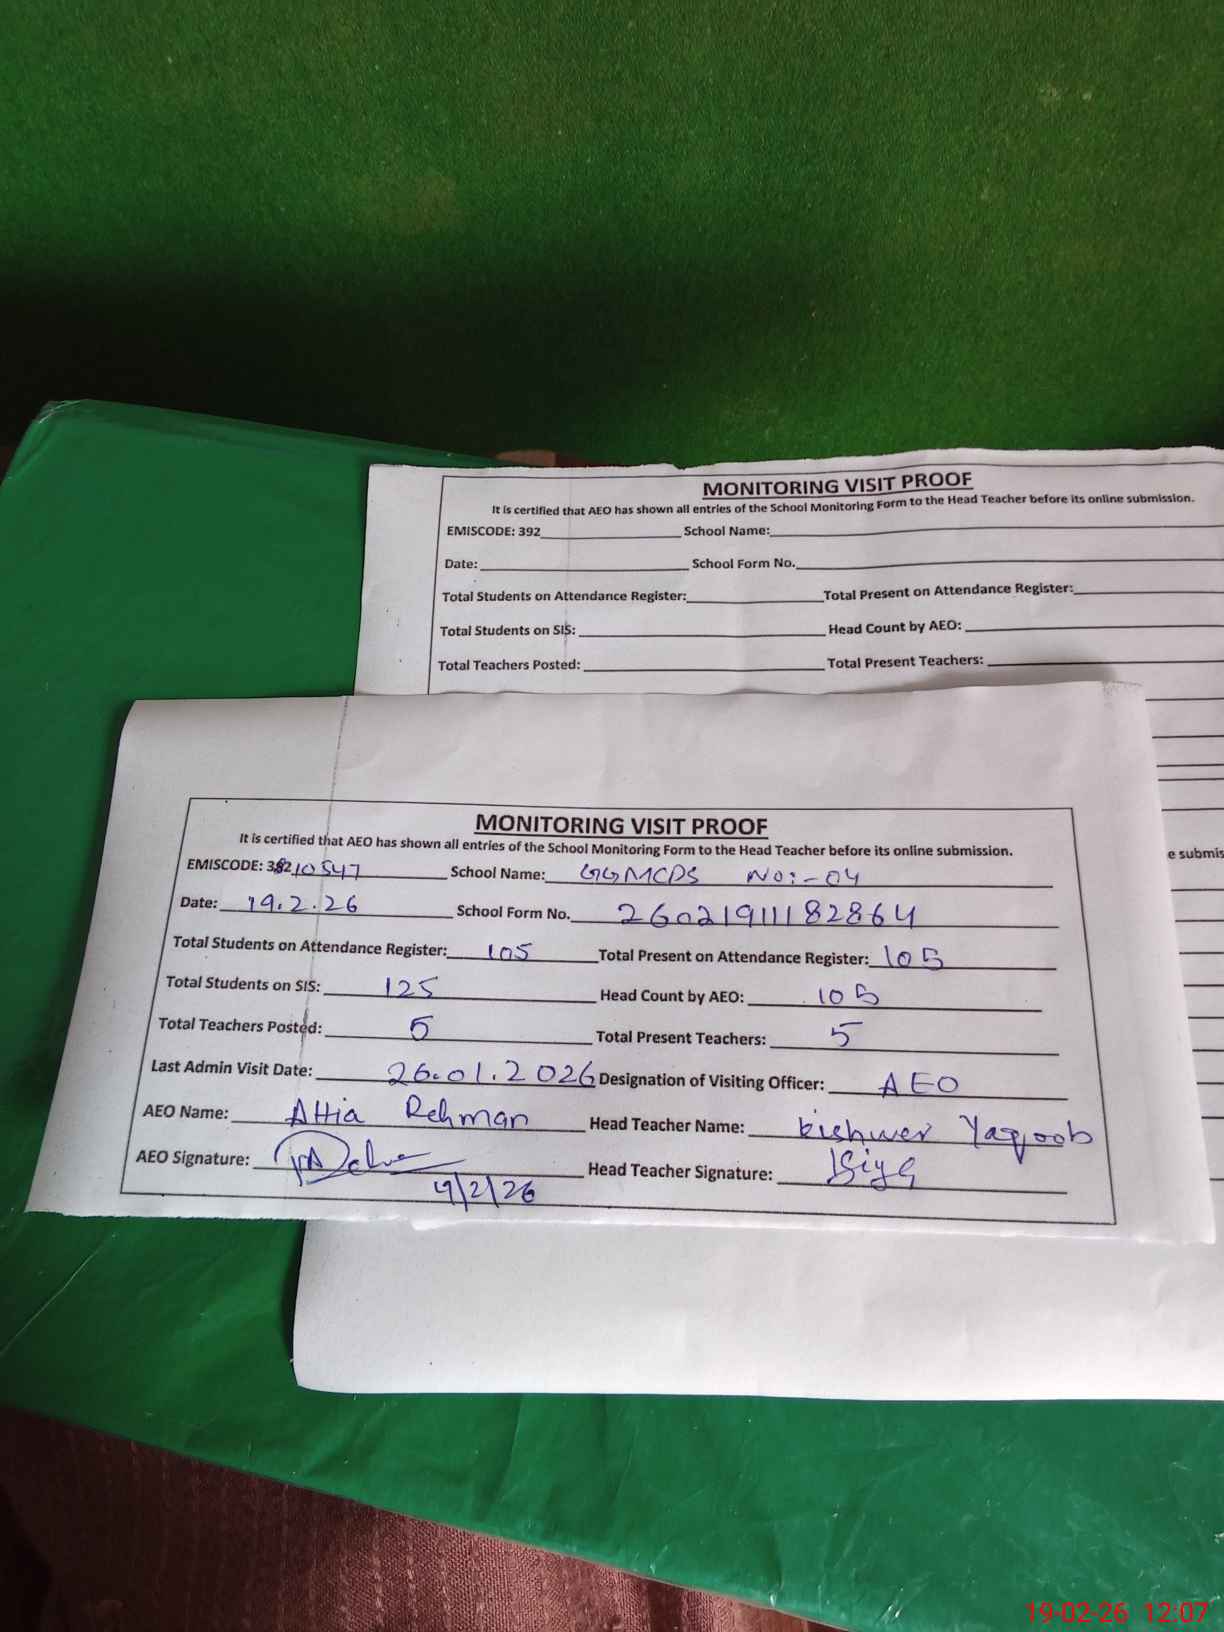 MONITORING VISIT PROOF
It is certified that AEO has shown all entries of the School Monitoring Form to the Head Teacher before its online submission.
EMISCODE: 392 School Name:
Date: School Form No.
Total Students on Attendance Register: Total Present on Attendance Register:
Total Students on SIS: Head Count by AEO:
Total Teachers Posted: Total Present Teachers:
e submis
MONITORING VISIT PROOF
It is certified that AEO has shown all entries of the School Monitoring Form to the Head Teacher before its online submission.
EMISCODE: 3810547 School Name: GGMCPS No:-04
Date: 19.2.26 School Form No. 26021911182864
Total Students on Attendance Register: 105 Total Present on Attendance Register: 105
Total Students on SIS: 125 Head Count by AEO: 105
Total Teachers Posted: 5 Total Present Teachers: 5
Last Admin Visit Date: 26.01.2026 Designation of Visiting Officer: AEO
AEO Name: Attia Rehman Head Teacher Name: Kishwer Yaqoob
AEO Signature: Head Teacher Signature:
19-02-26 12:07